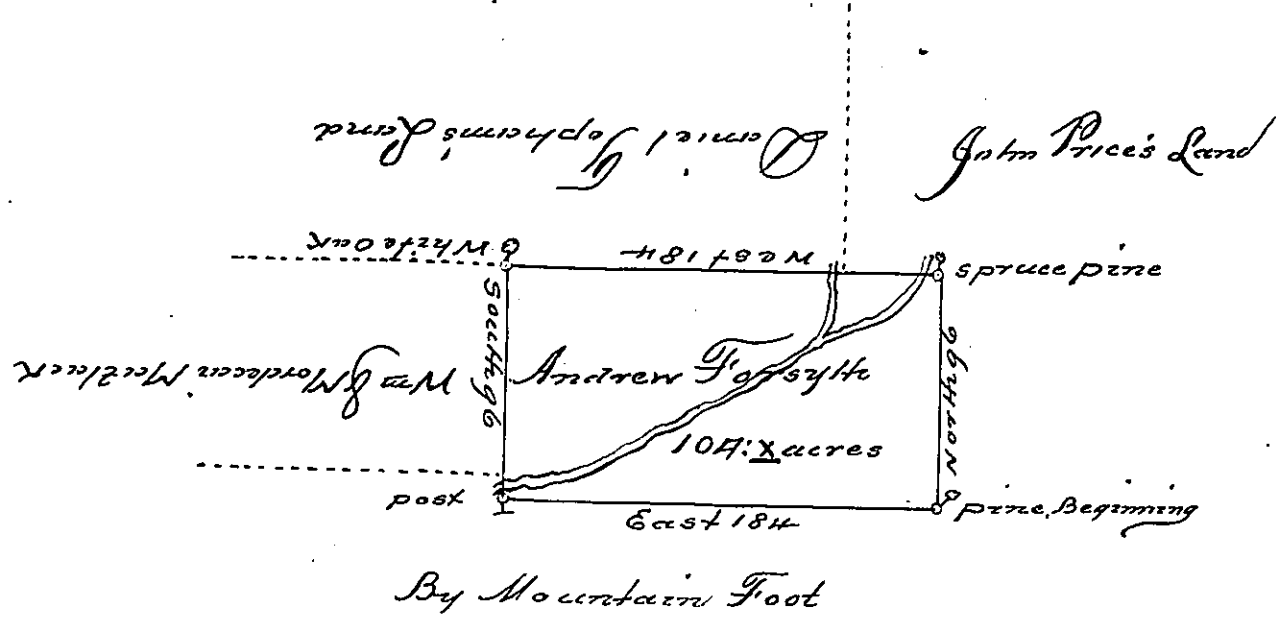 Daniel Topham's Land
John Price's Land
White Oak
West 184
spruce pine
South 96
North 96
Wm & Mordecai
Andrew Forsyth
104: X acres
post
East 184
pine, Beginning
By Mountain Foot